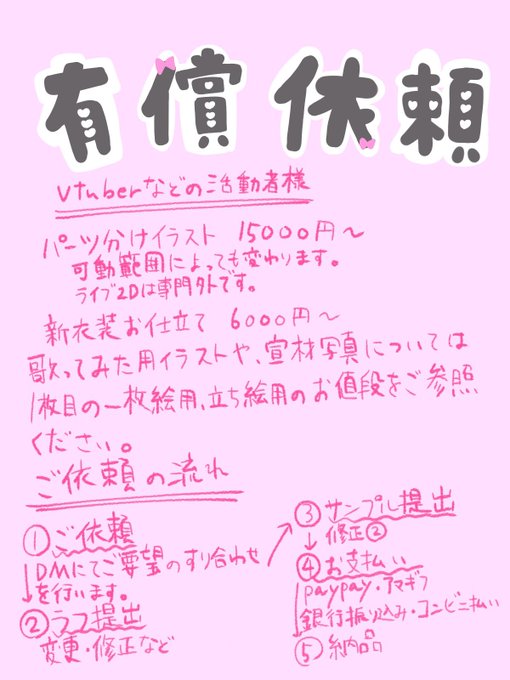 有償依頼
Vtuberなどの活動者様
パーツ分けイラスト 15000円〜
可動範囲によっても変わります。
ライブ2Dは専門外です。
新衣装お仕立て 6000円〜
歌ってみた用イラストや、宣材写真については
1枚目の一枚絵用、立ち絵用のお値段をご参照
ください。
ご依頼の流れ
①ご依頼
DMにてご要望のすり合わせ
を行います。
②ラフ提出
変更・修正など
③サンプル提出
修正②
④お支払い
paypay・アマギフ
銀行振り込み・コンビニ払い
⑤納品